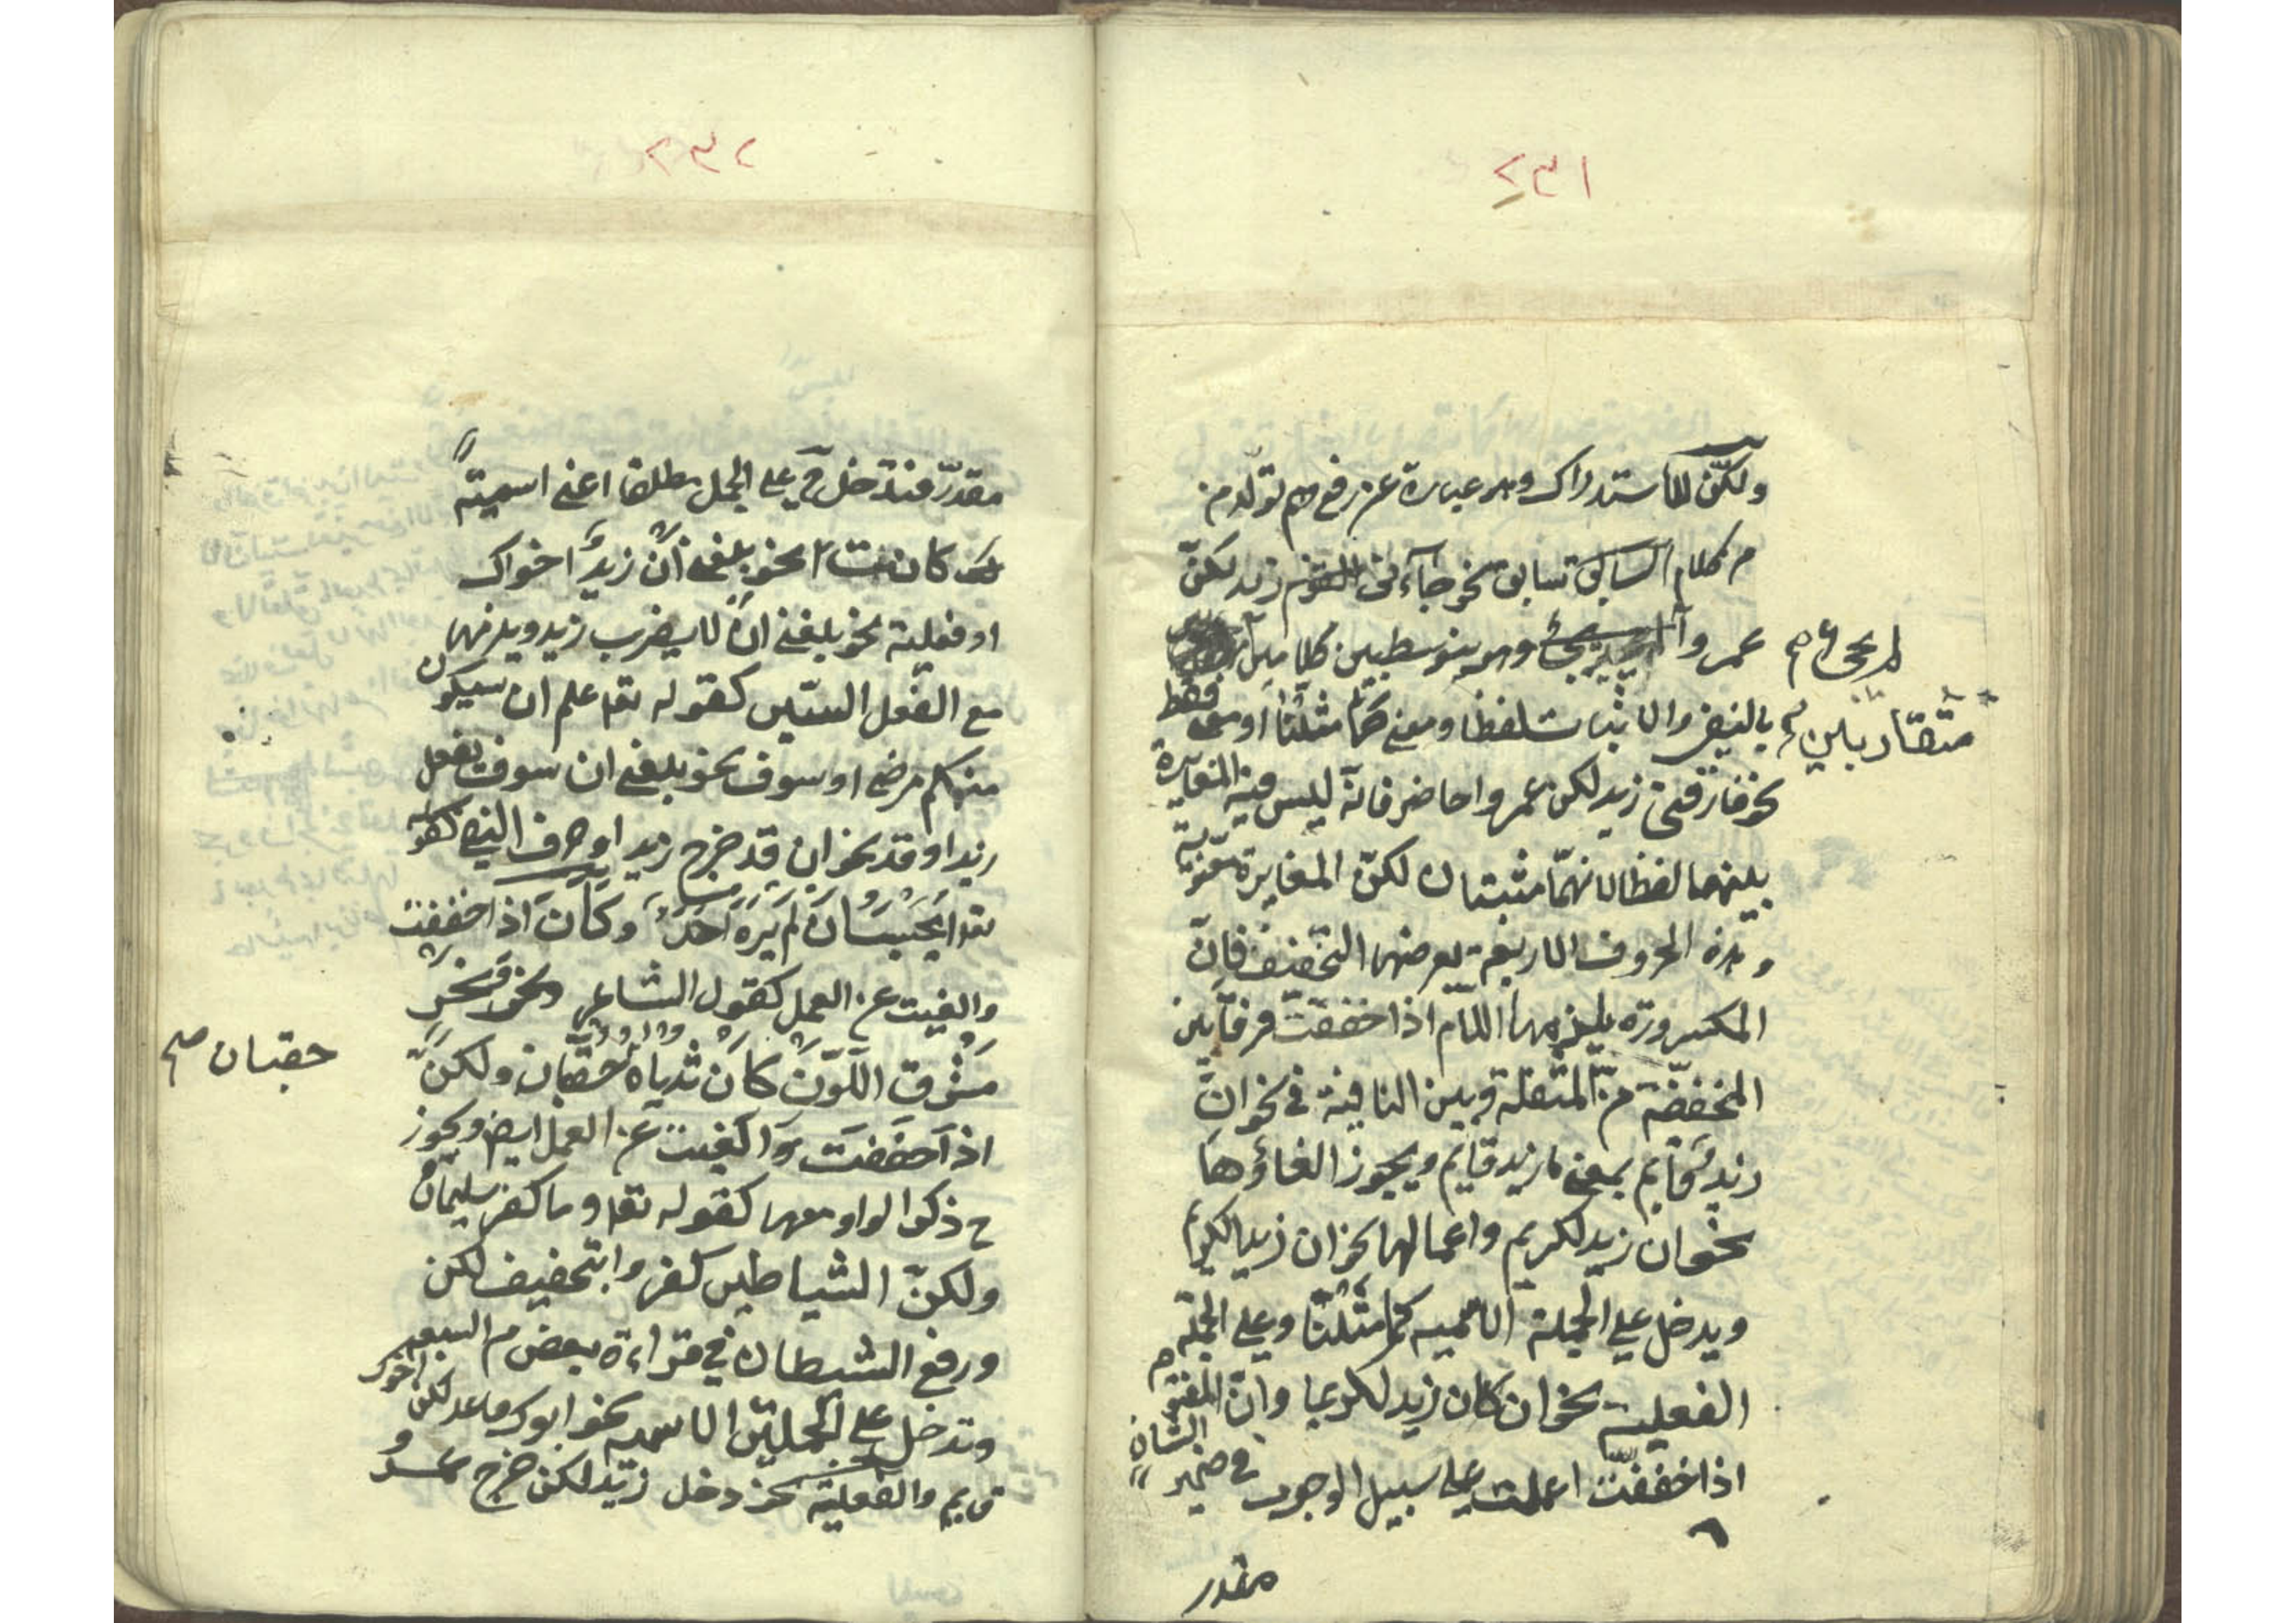 ٢٣١
ولكنّ للاستدراك وهو عبارة عن رفع وهم تولّد من
م كلام السابق سابق نحو جاءنى القوم زيد لكنّ
عمروا لم يجئ وهو يتوسط بين كلامين
لم يجئ صح
متقاربين صح
بالنفى والاثبات لفظا ومعنى كما مثلنا او معنى فقط
نحو فارقنى زيد لكن عمروا حاضر فانه ليس فيه المغايرة
بينهما لفظا لانهما مثبتان لكنّ المغايرة معنوية
وهذه الحروف الاربعة يعرضها التخفيف فانّ
المكسورة يلزمها اللام اذا خففت فرقا بين
المخففة من المثقلة وبين النافية فى نحو ان
زيد قايم بمعنى ما زيد قايم ويجوز الغاؤها
نحو ان زيد لكريم واعمالها نحو ان زيدا لكريم
ويدخل على الجملة الاسمية كما مثلنا وعلى الجملة
الفعلية نحو ان كان زيد لكريما وانّ المفتوح
اذا خففت اعملت على سبيل الوجوب فى ضمير الشان
مقدر
٢٣٢
مقدّر فتدخل ح على الجمل مطلقا اعنى اسمية
كانت نحو بلغنى ان زيد اخواك
او فعلية نحو بلغنى ان لا يضرب زيد ويلزمها
مع الفعل السين كقوله تعا علم ان سيكون
منكم مرضى او سوف نحو بلغنى ان سوف يفعل
زيد او قد نحو ان قد خرج زيد او حرف النفى كقوله
تعا ايحسب ان لم يره احد وكأن اذا خففت
والغيت عن العمل كقول الشاعر ونحر
مشرق اللون كأن ثدياه حقان ولكنّ
حقبان صح
اذا خففت والغيت عن العمل ايض ويجوز
ح ذكر الواو معها كقوله تعا وما كفر سليمان
ولكنّ الشياطين كفروا بتخفيف لكن
ورفع الشيطان فى قراءة بعض من السبعه
وتدخل على الجملتين الاسمية نحو ابوك قاعد لكن اخوك
قايم والفعلية نحو دخل زيد لكن خرج عمرو